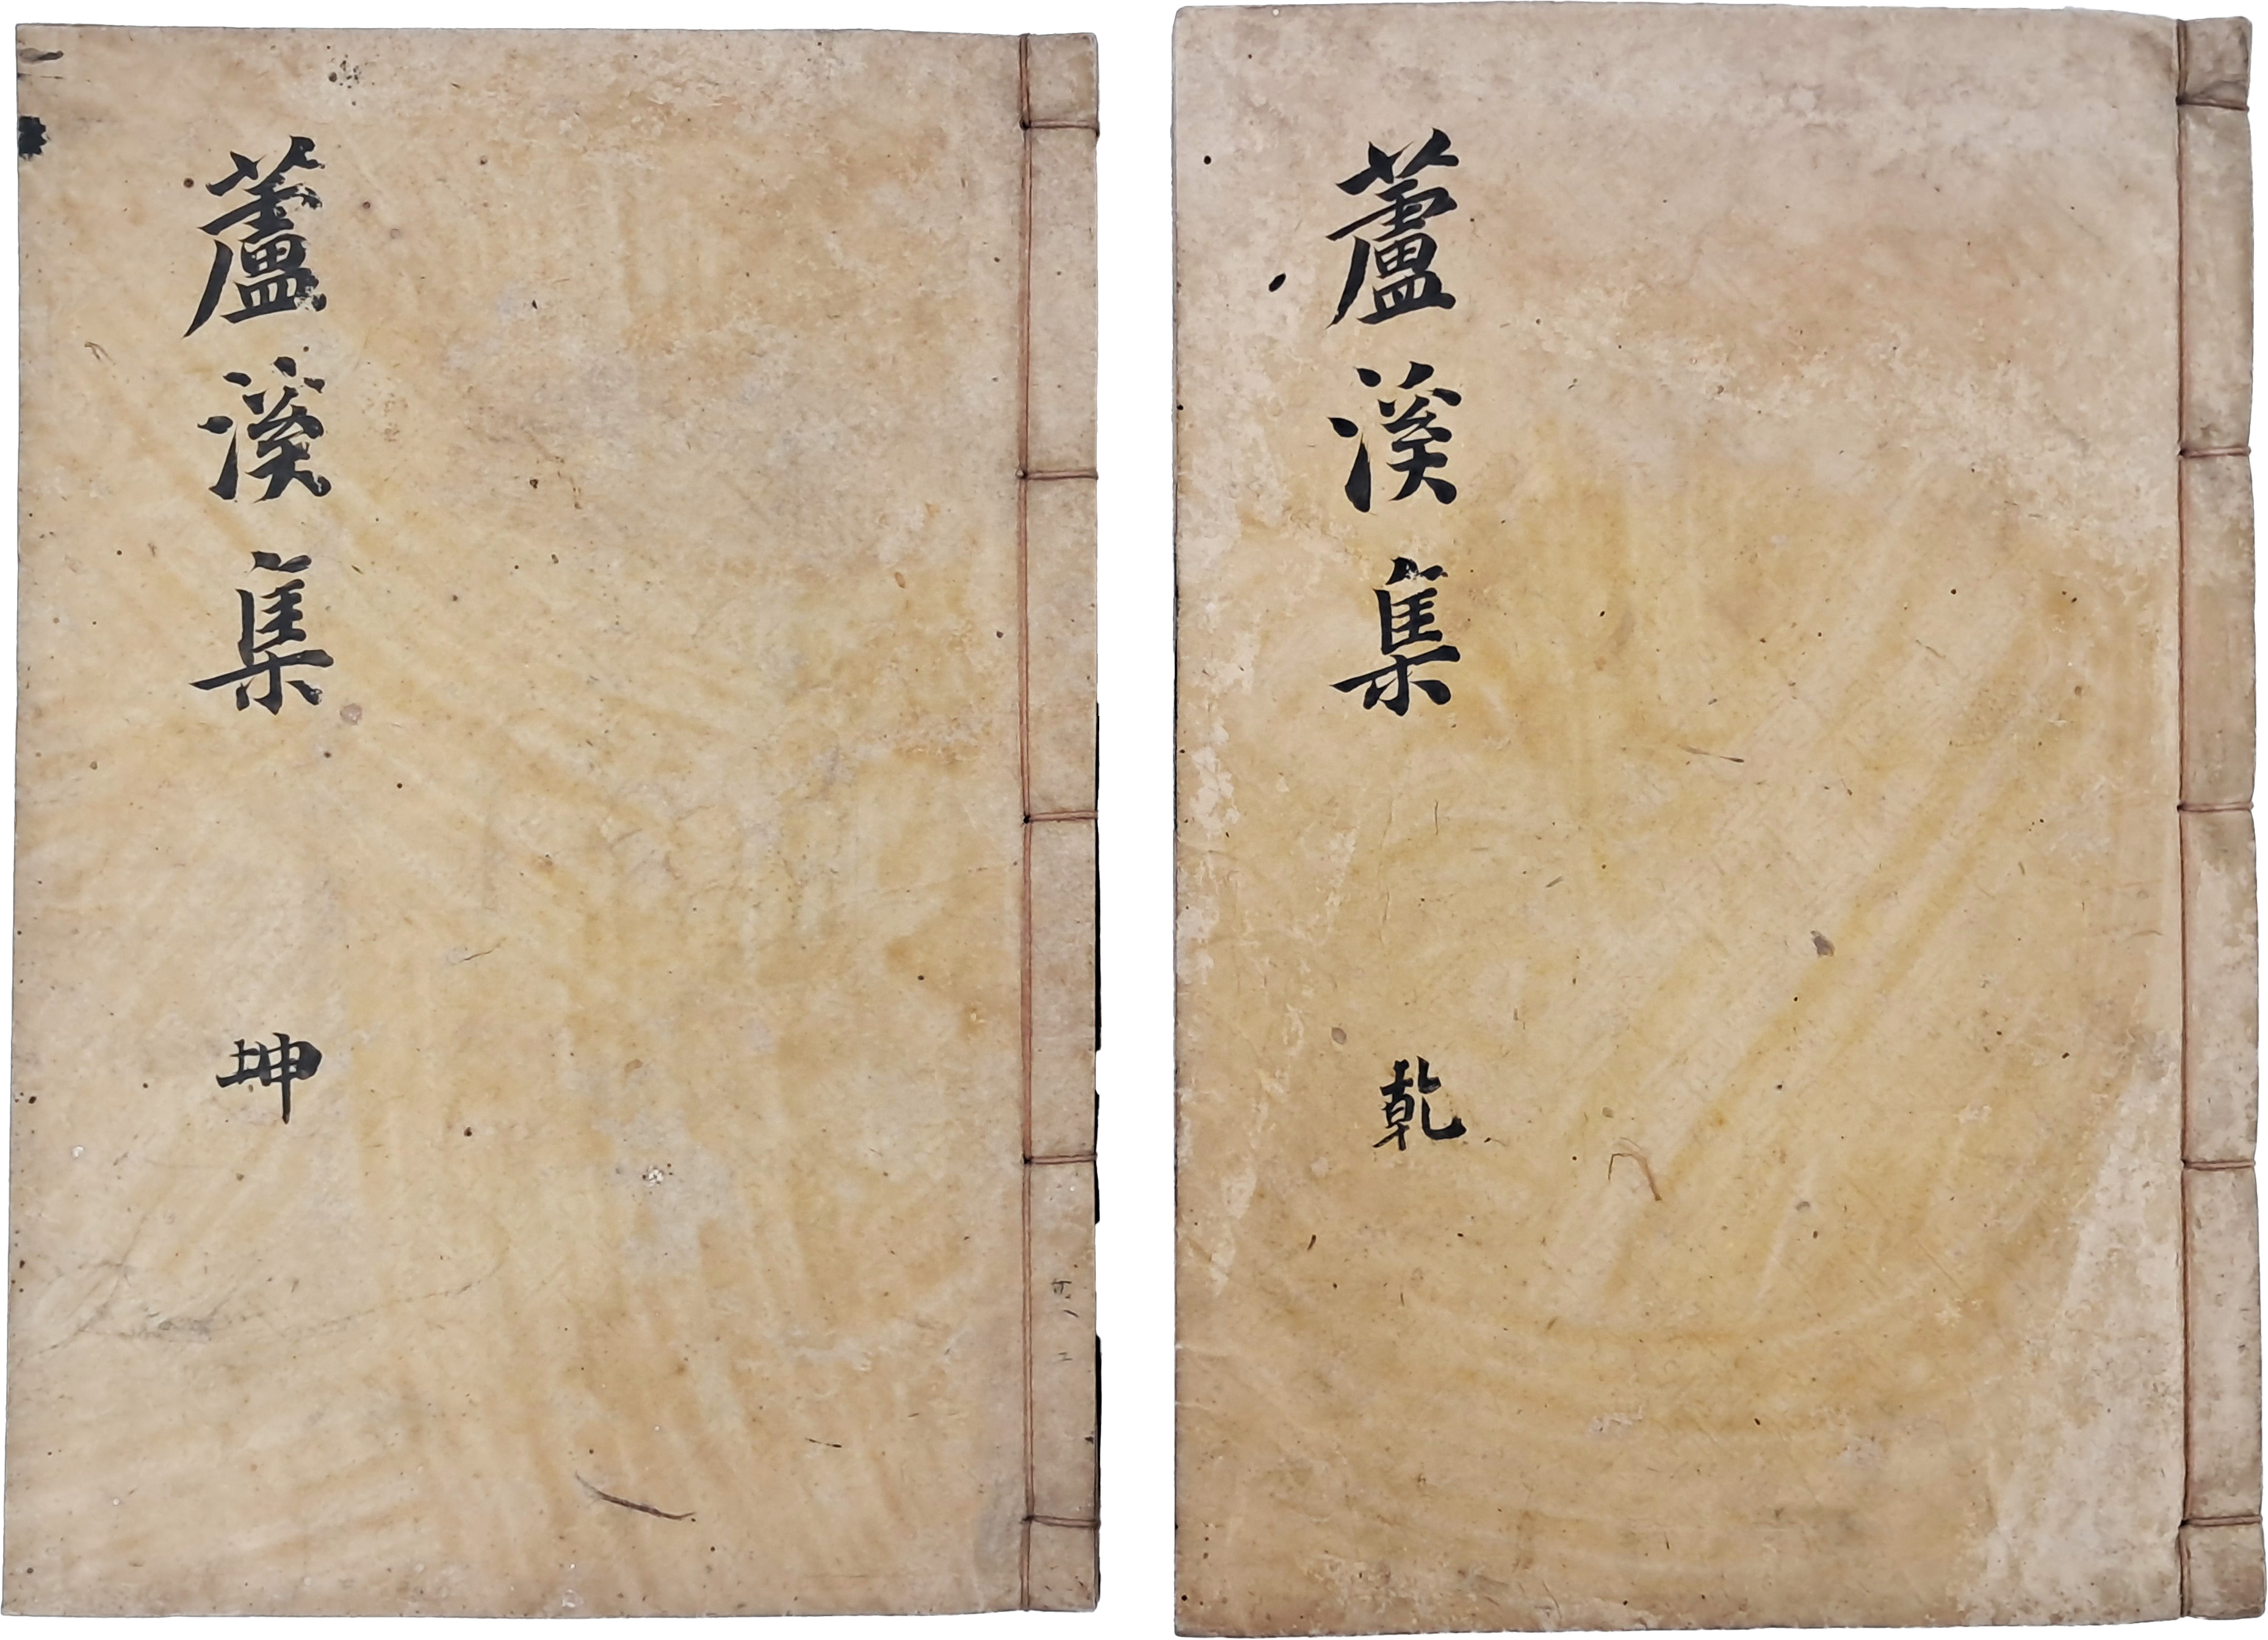 蘆溪集 乾
蘆溪集 坤